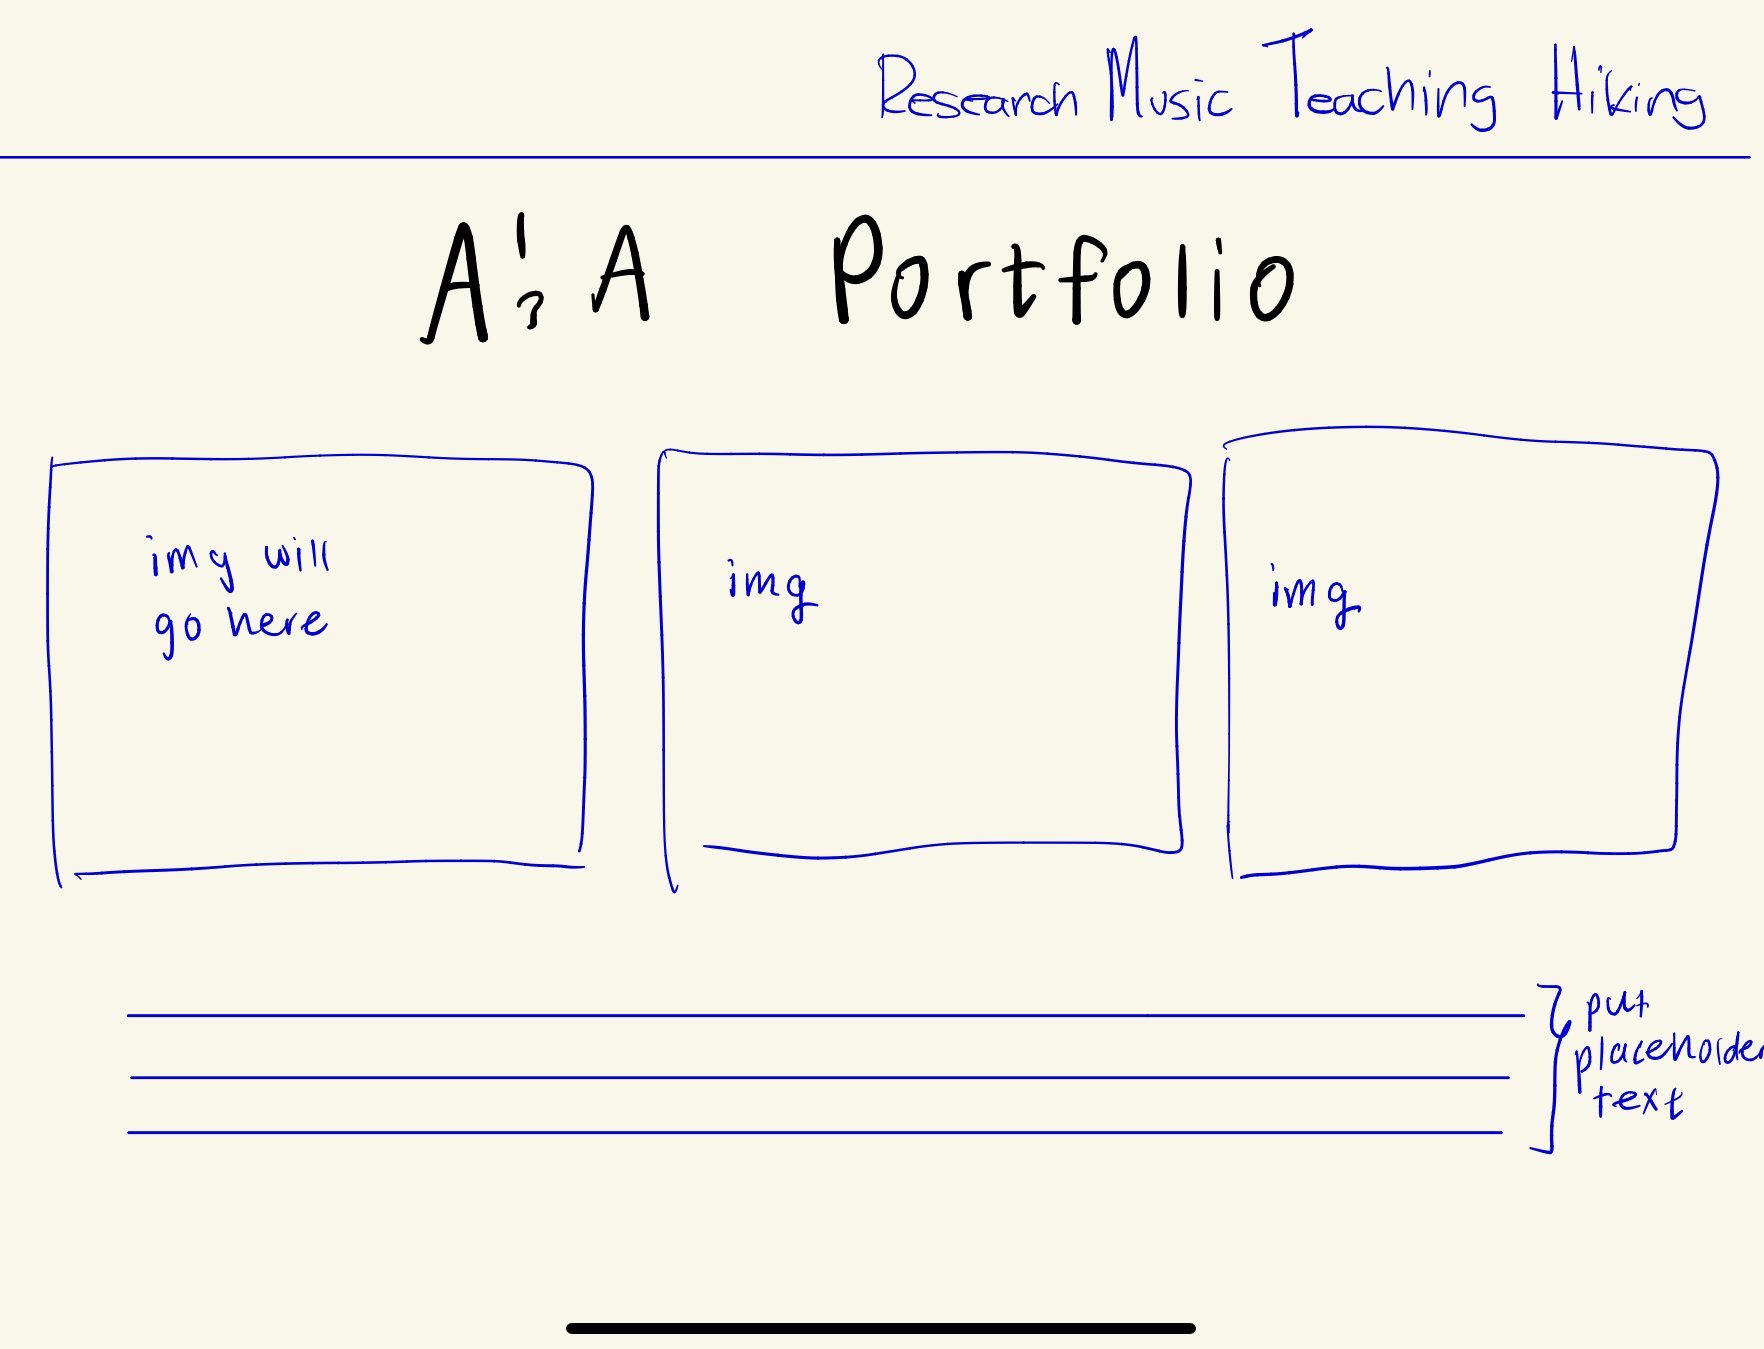 Research Music Teaching Hiking
A!?A Portfolio
img will
go here
img
img
put
placeholder
text